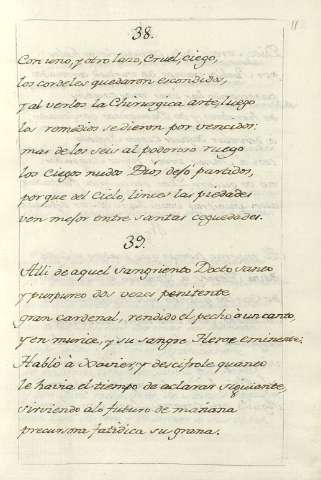 11
38.
Con uno, y otro lazo, Cruel, ciego,
los cordeles quedaron escondidos,
y al verlos la Chirurgica arte, luego
los remedios se dieron por vencidos:
mas de los seis al poderoso ruego
los Ciegos nudos Dios dejó partidos,
porque del Cielo, linces las piedades
ven mejor entre santas ceguedades.
39.
Alli de aquel sangriento Docto santo
y purpureo dos veces penitente
gran Cardenal, rendido el pecho à un canto,
y en murice, y su sangre Heroe eminente;
Habló à Xavier, y descifrole quanto
le havia el tiempo de aclarar siguiente,
sirviendo a lo futuro de mañana
precursora fatidica su grana.